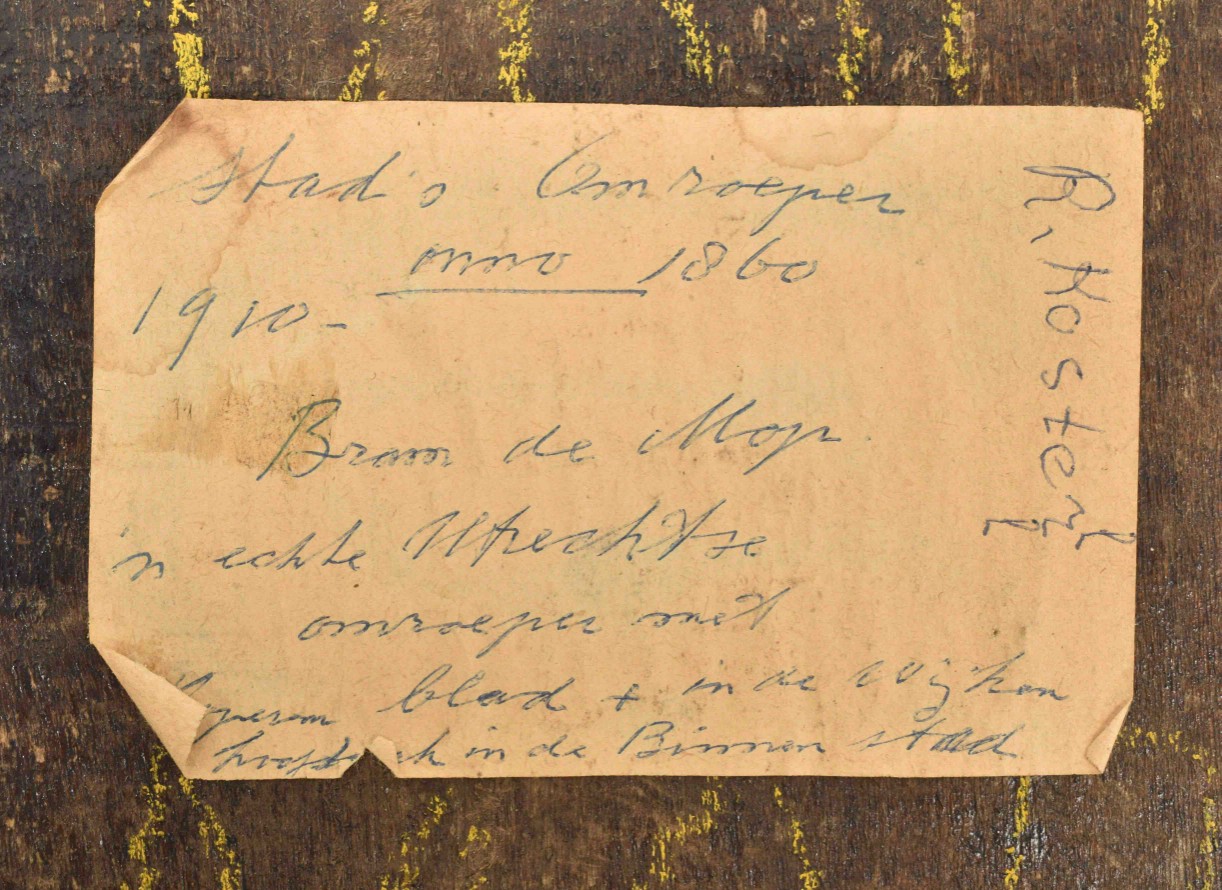 Stad's Omroeper
anno 1860
1910-
Bram de Mop.
'n echte Utrechtse
omroeper met
blad + in de Wijken
in de Binnen stad
R. Kosterÿ